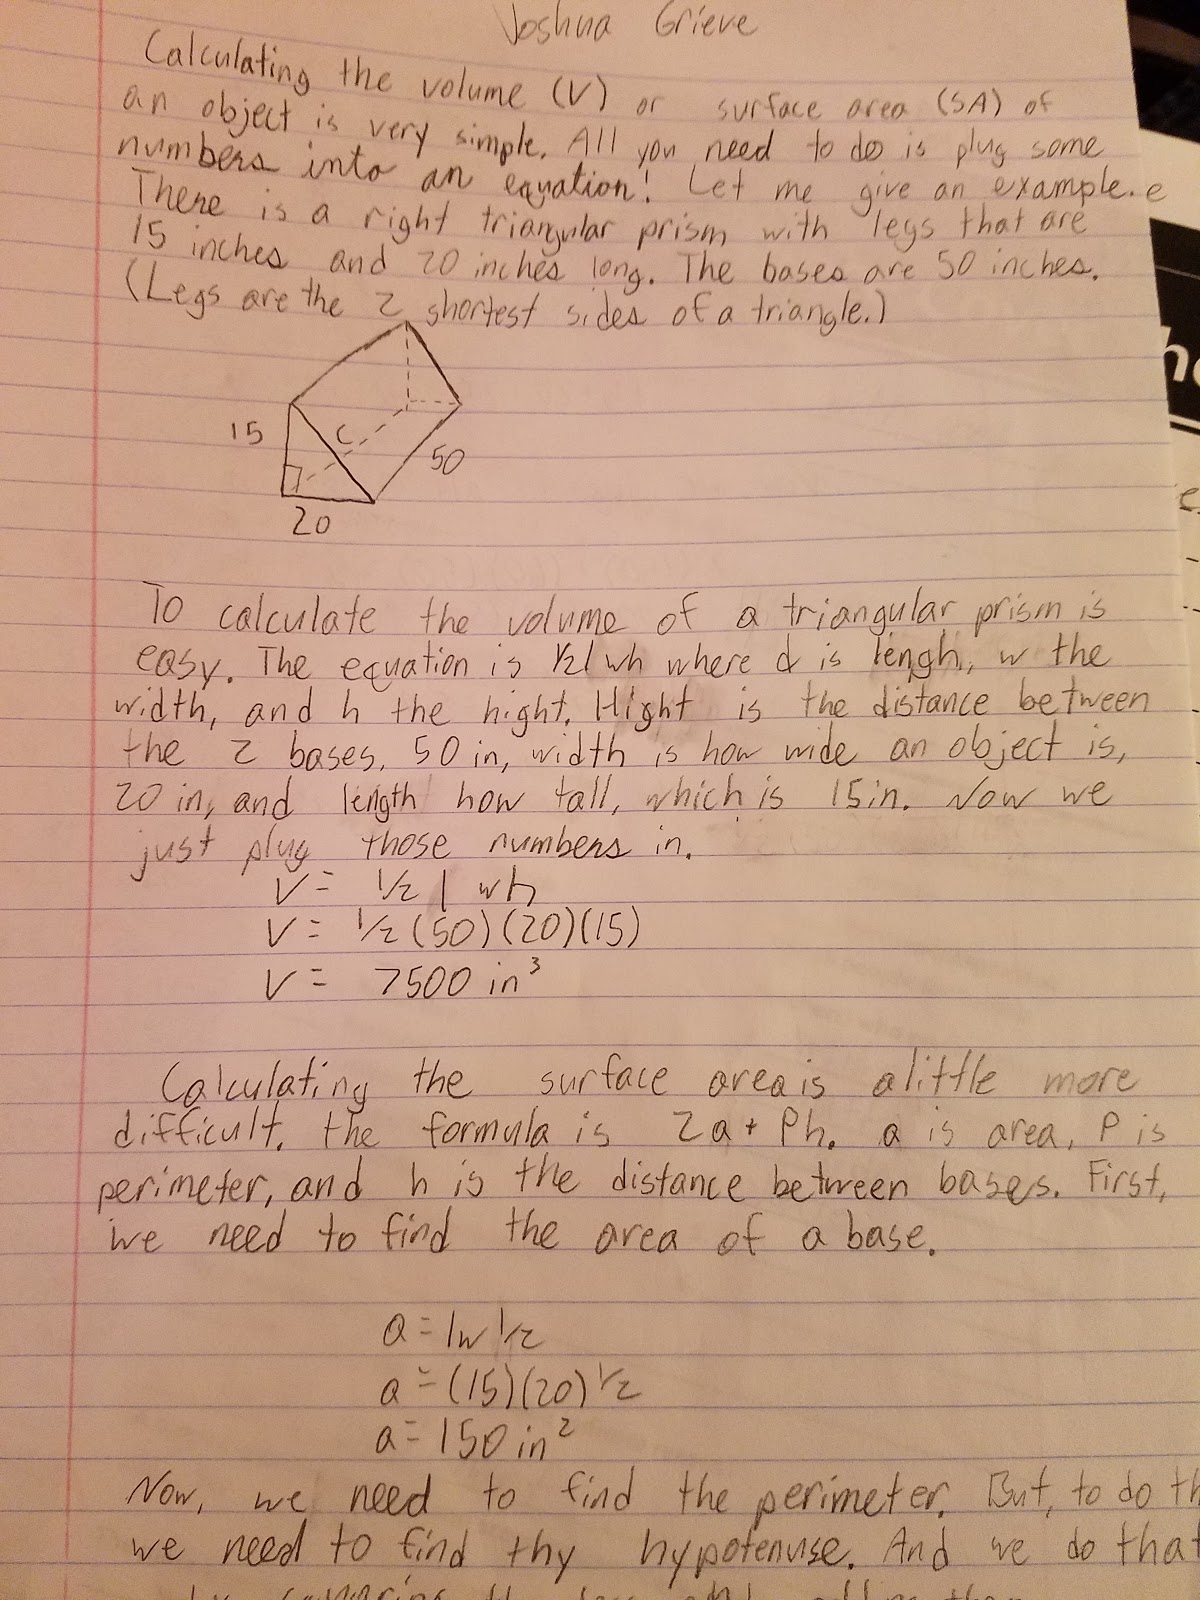 Joshua Grieve
Calculating the volume (V) or surface area (SA) of
an object is very simple. All you need to do is plug some
numbers into an equation! Let me give an example.e
There is a right triangular prism with legs that are
15 inches and 20 inches long. The bases are 50 inches.
(Legs are the 2 shortest sides of a triangle.)
15
C
50
20
To calculate the volume of a triangular prism is
easy. The equation is 1/2 l wh where l is lengh, w the
width, and h the hight. Hight is the distance between
the 2 bases, 50 in, width is how wide an object is,
20 in, and length how tall, which is 15in. Now we
just plug those numbers in.
V = 1/2 l wh
V = 1/2 (50)(20)(15)
V = 7500 in³
Calculating the surface area is a little more
difficult. the formula is 2a + Ph. a is area, P is
perimeter, and h is the distance between bases. First,
we need to find the area of a base.
a = lw 1/2
a = (15)(20) 1/2
a = 150 in²
Now, we need to find the perimeter. But, to do th
we need to find thy hypotenuse. And we do that